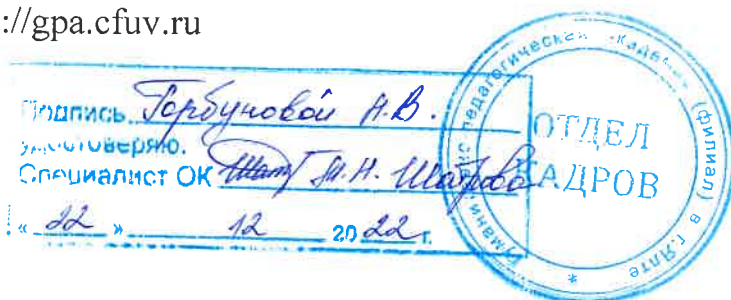 ://gpa.cfuv.ru
Подпись Горбуновой Н.В.
удостоверяю.
Специалист ОК Шатрова
« 22 » 12 20 22 г.
ОТДЕЛ
КАДРОВ
педагогическая академия (филиал) в г.Ялте